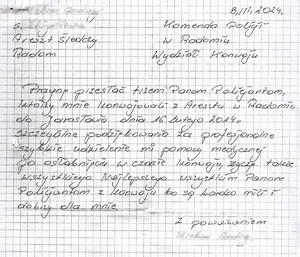 8.III.2024.
s. Komenda Policji
Areszt Śledczy w Radomiu
Radom Wydział Konwoju
Pragnę przesłać tszem Panom Policjantom,
którzy mnie konwojowali z Aresztu w Radomiu
do Jarosławia dnia 16 Lutego 2024.
Szczególne podziękowania za profesjonalne
szybkie udzielenie mi pomocy medycznej
po osłabnięciu w czasie konwoju, życzę także
wszystkiego Najlepszego wszystkim Panom
Policjantom z konwoju bo są bardzo mili i
dobrzy dla mnie.
Z poważaniem